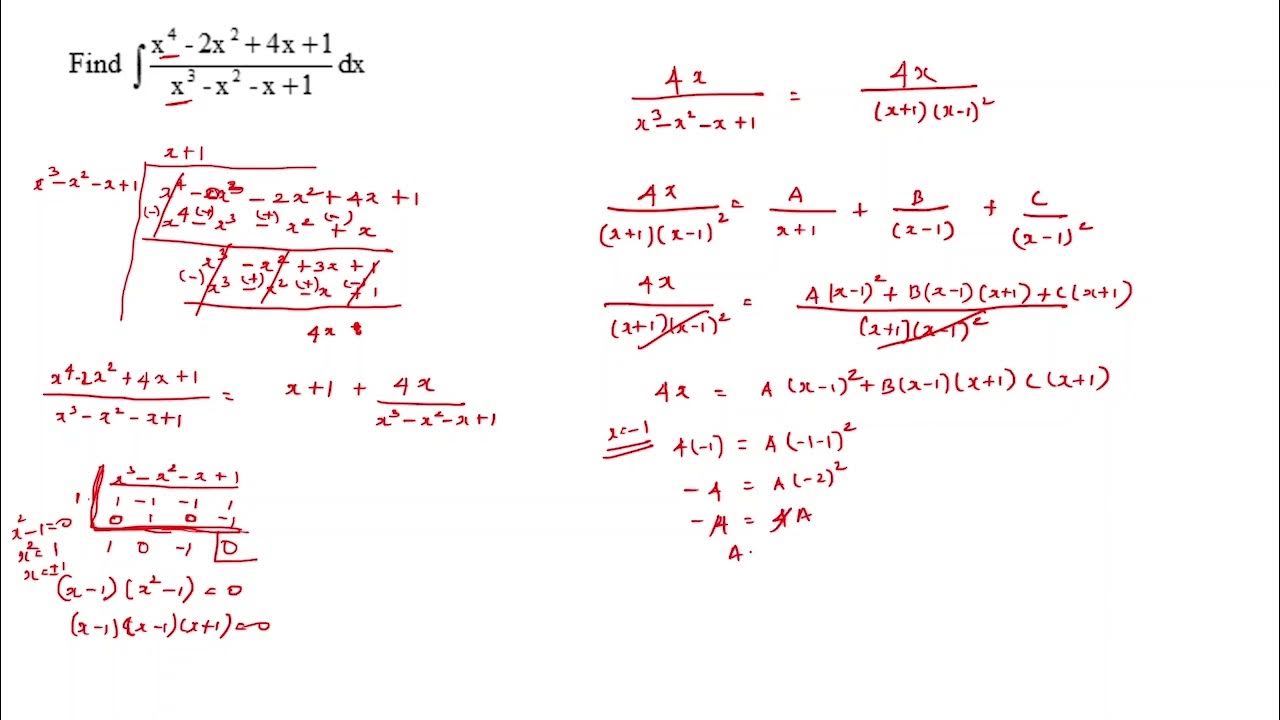 Find ∫ (x⁴ - 2x² + 4x + 1)/(x³ - x² - x + 1) dx
x + 1
x³ - x² - x + 1 | x⁴ - 0x³ - 2x² + 4x + 1
(-) x⁴ (+) - x³ (+) - x² (-) + x
x³ - x² + 3x + 1
(-) x³ (+) - x² (+) - x (-) + 1
4x
(x⁴ - 2x² + 4x + 1)/(x³ - x² - x + 1) = x + 1 + 4x/(x³ - x² - x + 1)
x³ - x² - x + 1
1 | 1 -1 -1 1
0 1 0 -1
1 0 -1 0
x² - 1 = 0
x² = 1
x = ±1
(x-1)(x²-1) = 0
(x-1)(x-1)(x+1) = 0
4x/(x³ - x² - x + 1) = 4x/((x+1)(x-1)²)
4x/((x+1)(x-1)²) = A/(x+1) + B/(x-1) + C/(x-1)²
4x/((x+1)(x-1)²) = (A(x-1)² + B(x-1)(x+1) + C(x+1))/((x+1)(x-1)²)
4x = A(x-1)² + B(x-1)(x+1) C(x+1)
x=-1
4(-1) = A(-1-1)²
-4 = A(-2)²
-4 = 4A
A